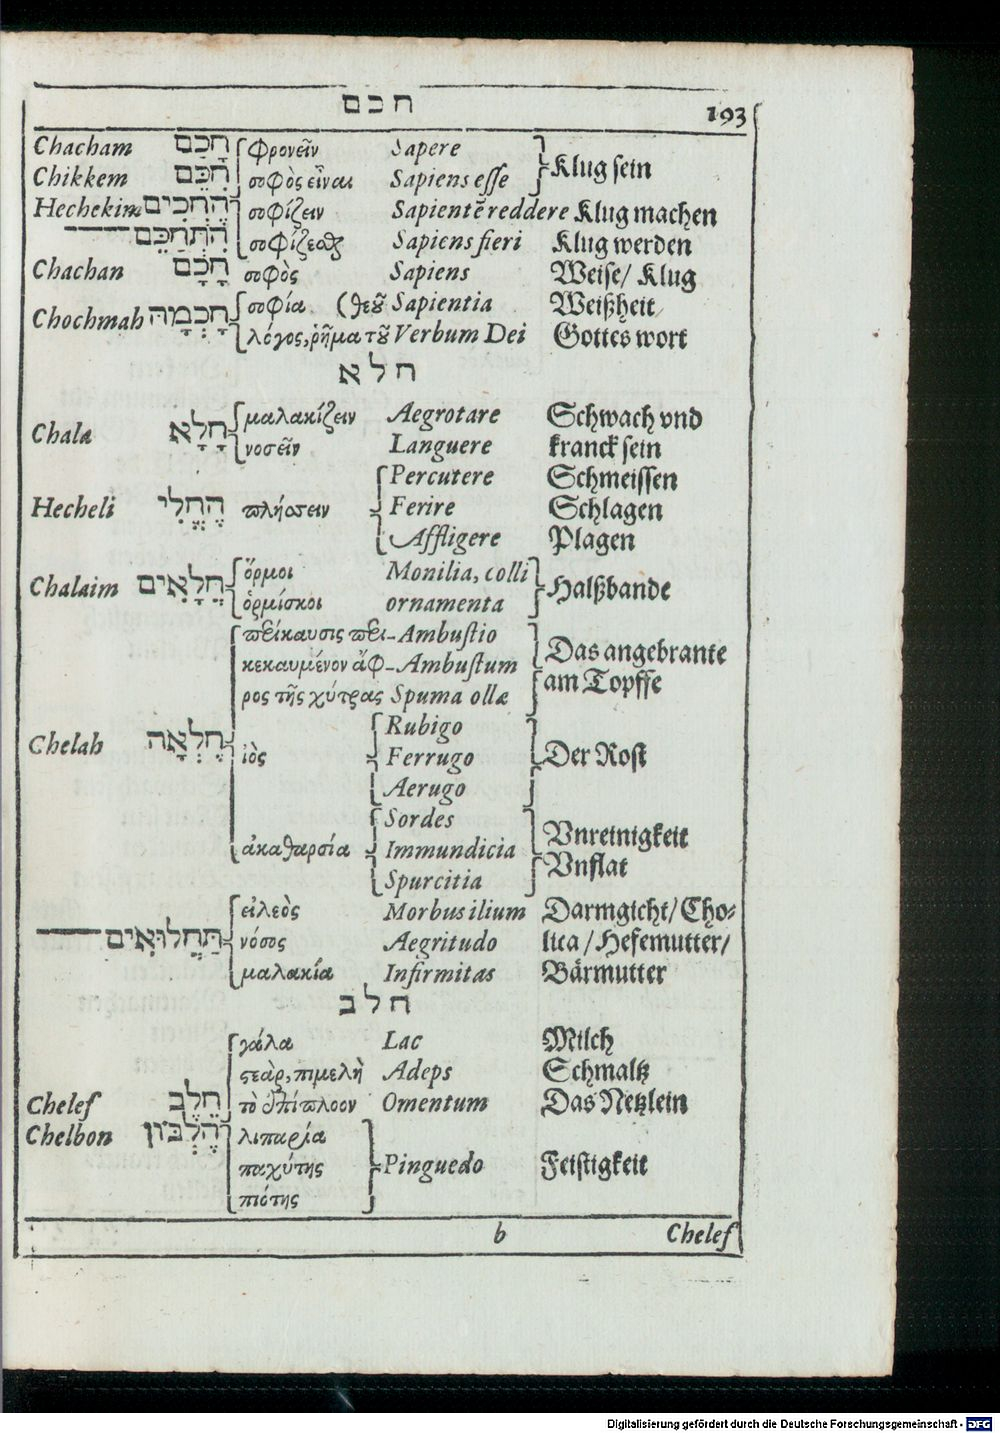 חכם
193
Chacham חָכַם φρονεῖν Sapere Klug sein
Chikkem חִכֵּם σοφὸς εἶναι Sapiens esse
Hechekim הֶחְכִּים σοφίζειν Sapientē reddere Klug machen
—— הִתְחַכֵּם σοφίζεσθαι Sapiens fieri Klug werden
Chachan חָכָם σοφὸς Sapiens Weise/ Klug
Chochmah חָכְמָה σοφία (θεοῦ Sapientia Weißheit
λόγος, ῥῆμα τοῦ Verbum Dei Gottes wort
חלא
Chala חָלָא μαλακίζειν Aegrotare Schwach vnd
νοσεῖν Languere kranck sein
Percutere Schmeissen
Hecheli הֶחֱלִי πλήσσειν Ferire Schlagen
Affligere Plagen
Chalaim חֲלָאִים ὅρμοι Monilia, colli Halßbande
ὁρμίσκοι ornamenta
περίκαυσις περι- Ambustio Das angebrante
κεκαυμένον ἀφ- Ambustum am Topffe
ρος τῆς χύτρας Spuma ollæ
Rubigo
Chelah חֶלְאָה ἰὸς Ferrugo Der Rost
Aerugo
Sordes
ἀκαθαρσία Immundicia Vnreinigkeit
Spurcitia Vnflat
εἰλεὸς Morbus ilium Darmgicht/ Cho-
—— תַּחֲלוּאִים νόσος Aegritudo lica/ Hefemutter/
μαλακία Infirmitas Bärmutter
חלב
γάλα Lac Milch
στεὰρ, πιμελὴ Adeps Schmaltz
Chelef חֵלֶב τὸ ἐπίπλοον Omentum Das Netzlein
Chelbon הֶלְבּוֹן λιπαρία
παχύτης Pinguedo Feistigkeit
πιότης
b Chelef
Digitalisierung gefördert durch die Deutsche Forschungsgemeinschaft - DFG